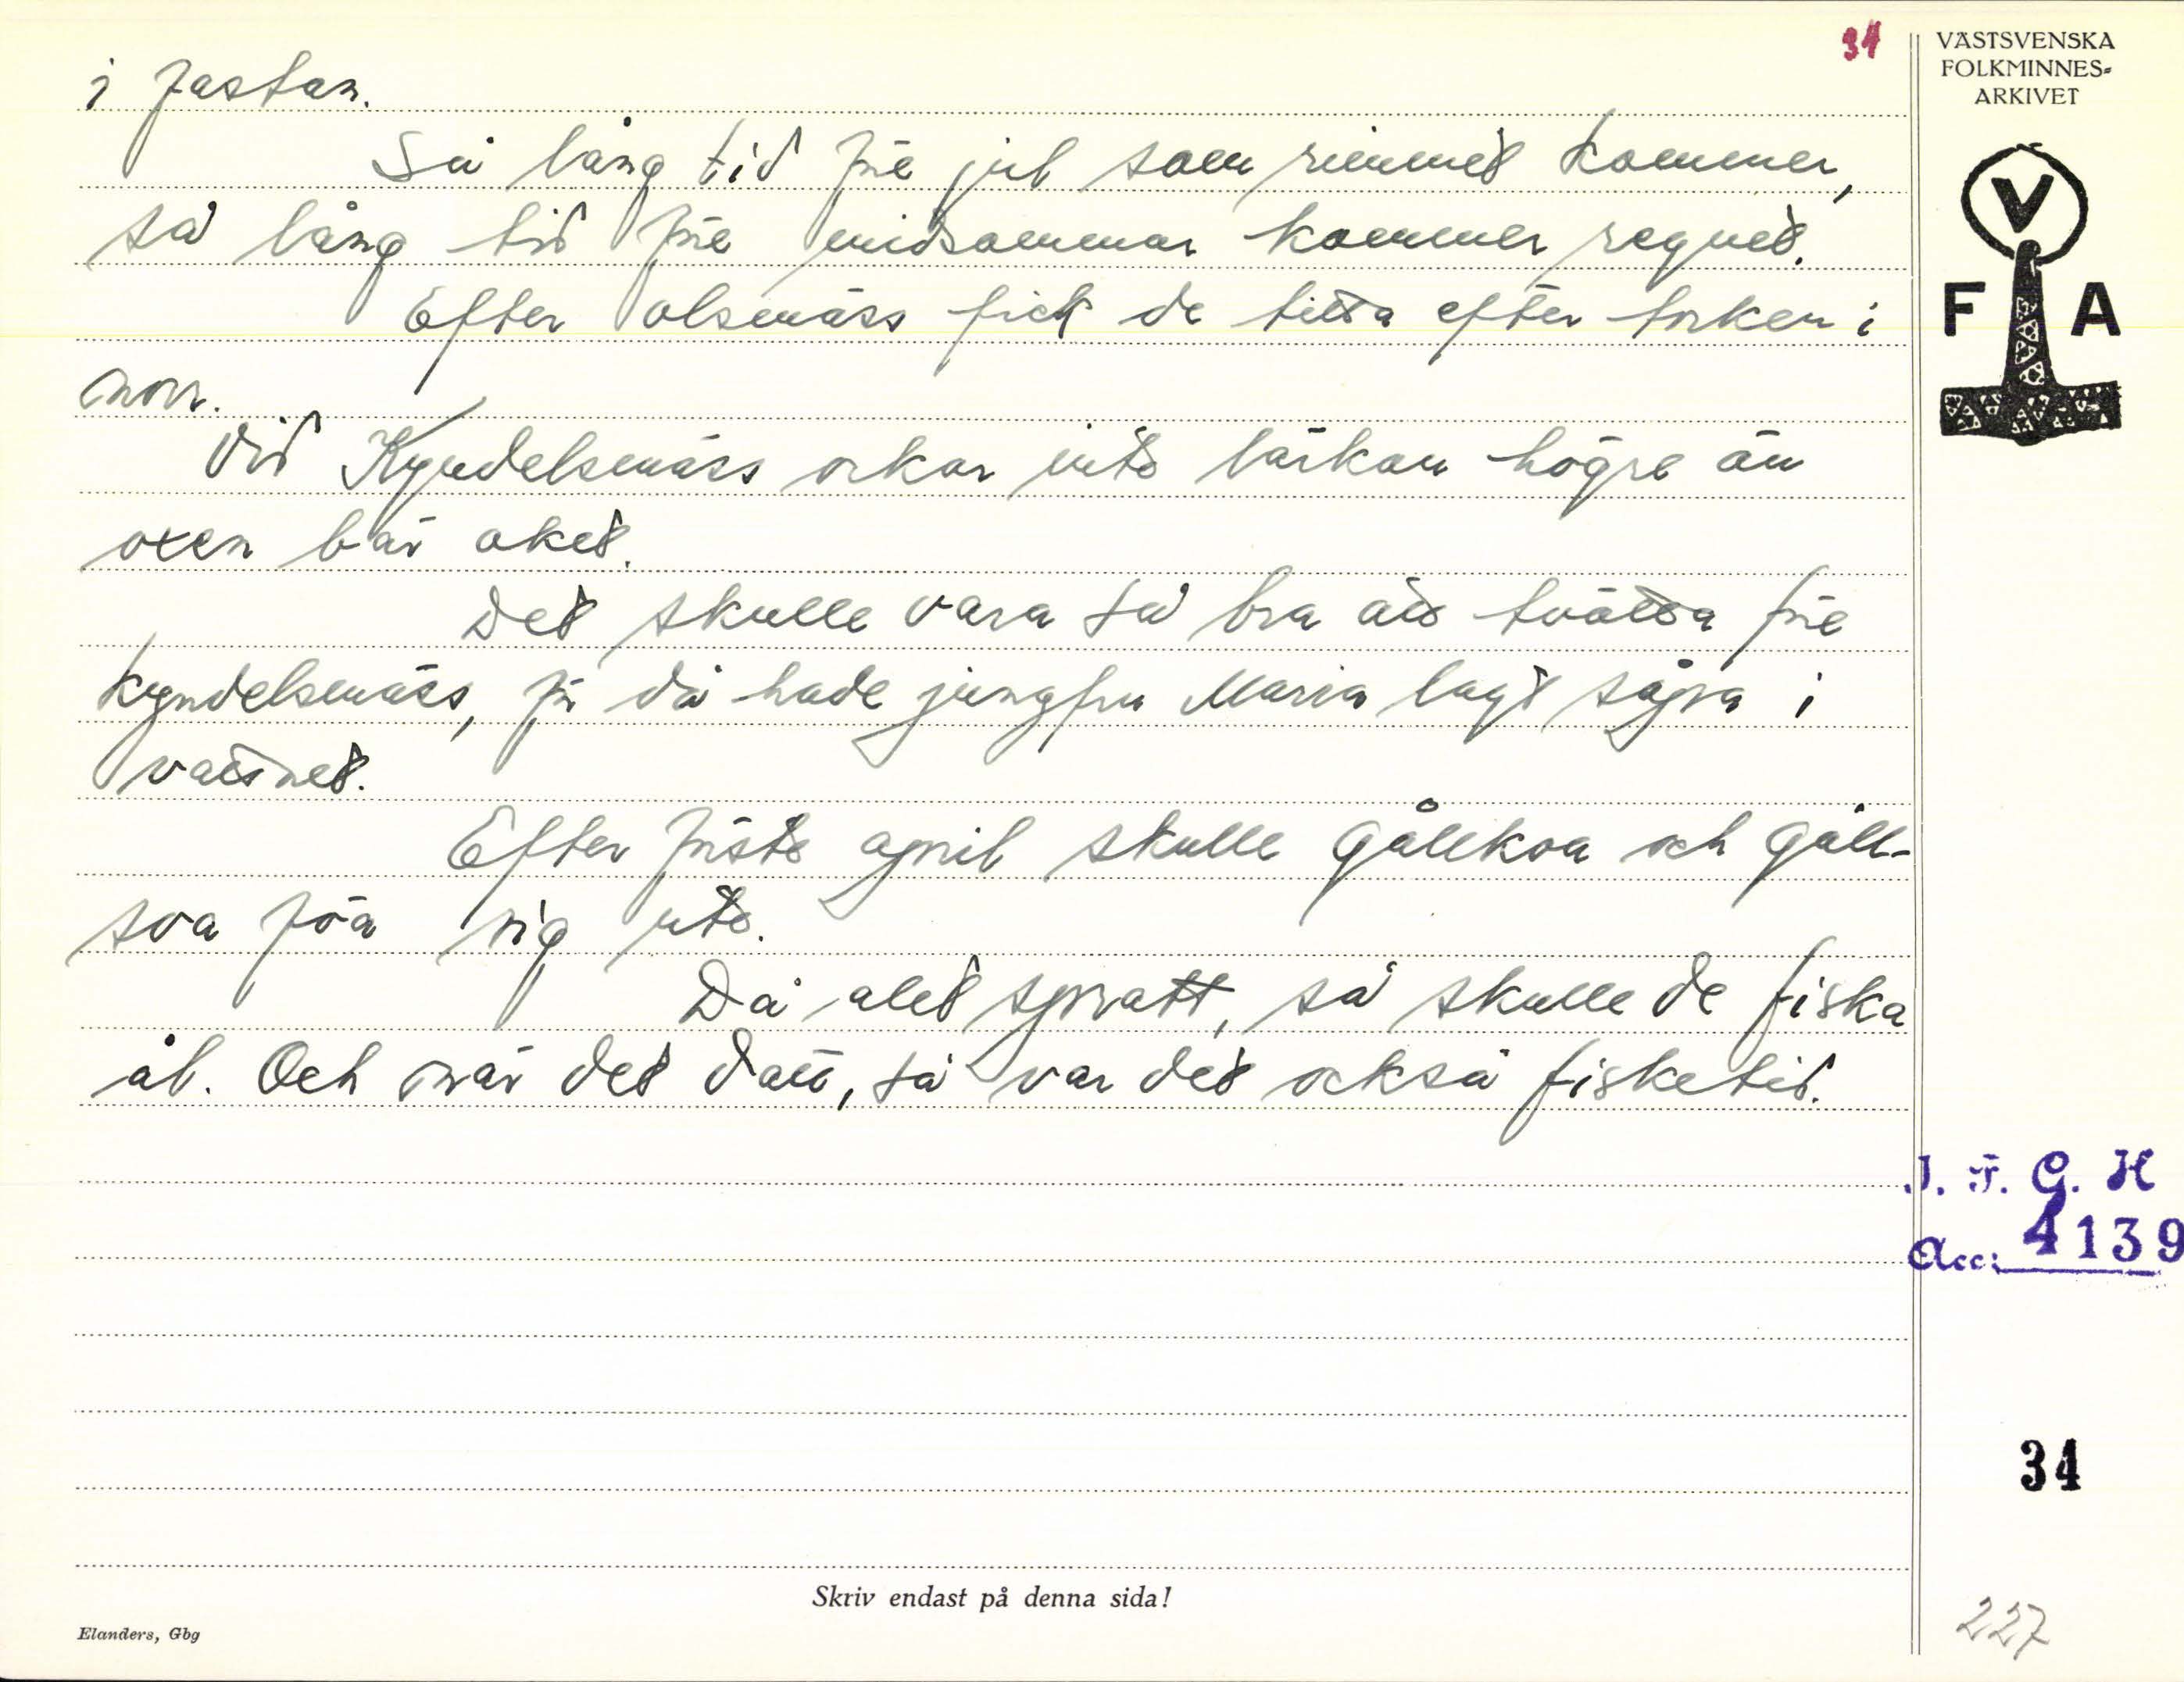 34
VÄSTSVENSKA
FOLKMINNES-
ARKIVET
V
F A
i fastan.
Så lång tid före jul som rimmet kommer,
så lång tid före midsommar kommer regnet.
Efter olsmäss fick de titta efter torken i
norr.
Vid Kyndelsmäss orkar inte lärkan högre än
oxen bär oket.
Det skulle vara så bra att tvätta före
kyndelsmäss, för då hade jungfru Maria lagt såpa i
vattnet.
Efter första april skulle gållkoa och gåll-
soa föa sig ute.
Då alet spratt, så skulle de fiska
ål. Och när det datt, så var det också fisketid.
J. F. G. H
Acc: 4139
34
Skriv endast på denna sida!
Elanders, Gbg
227